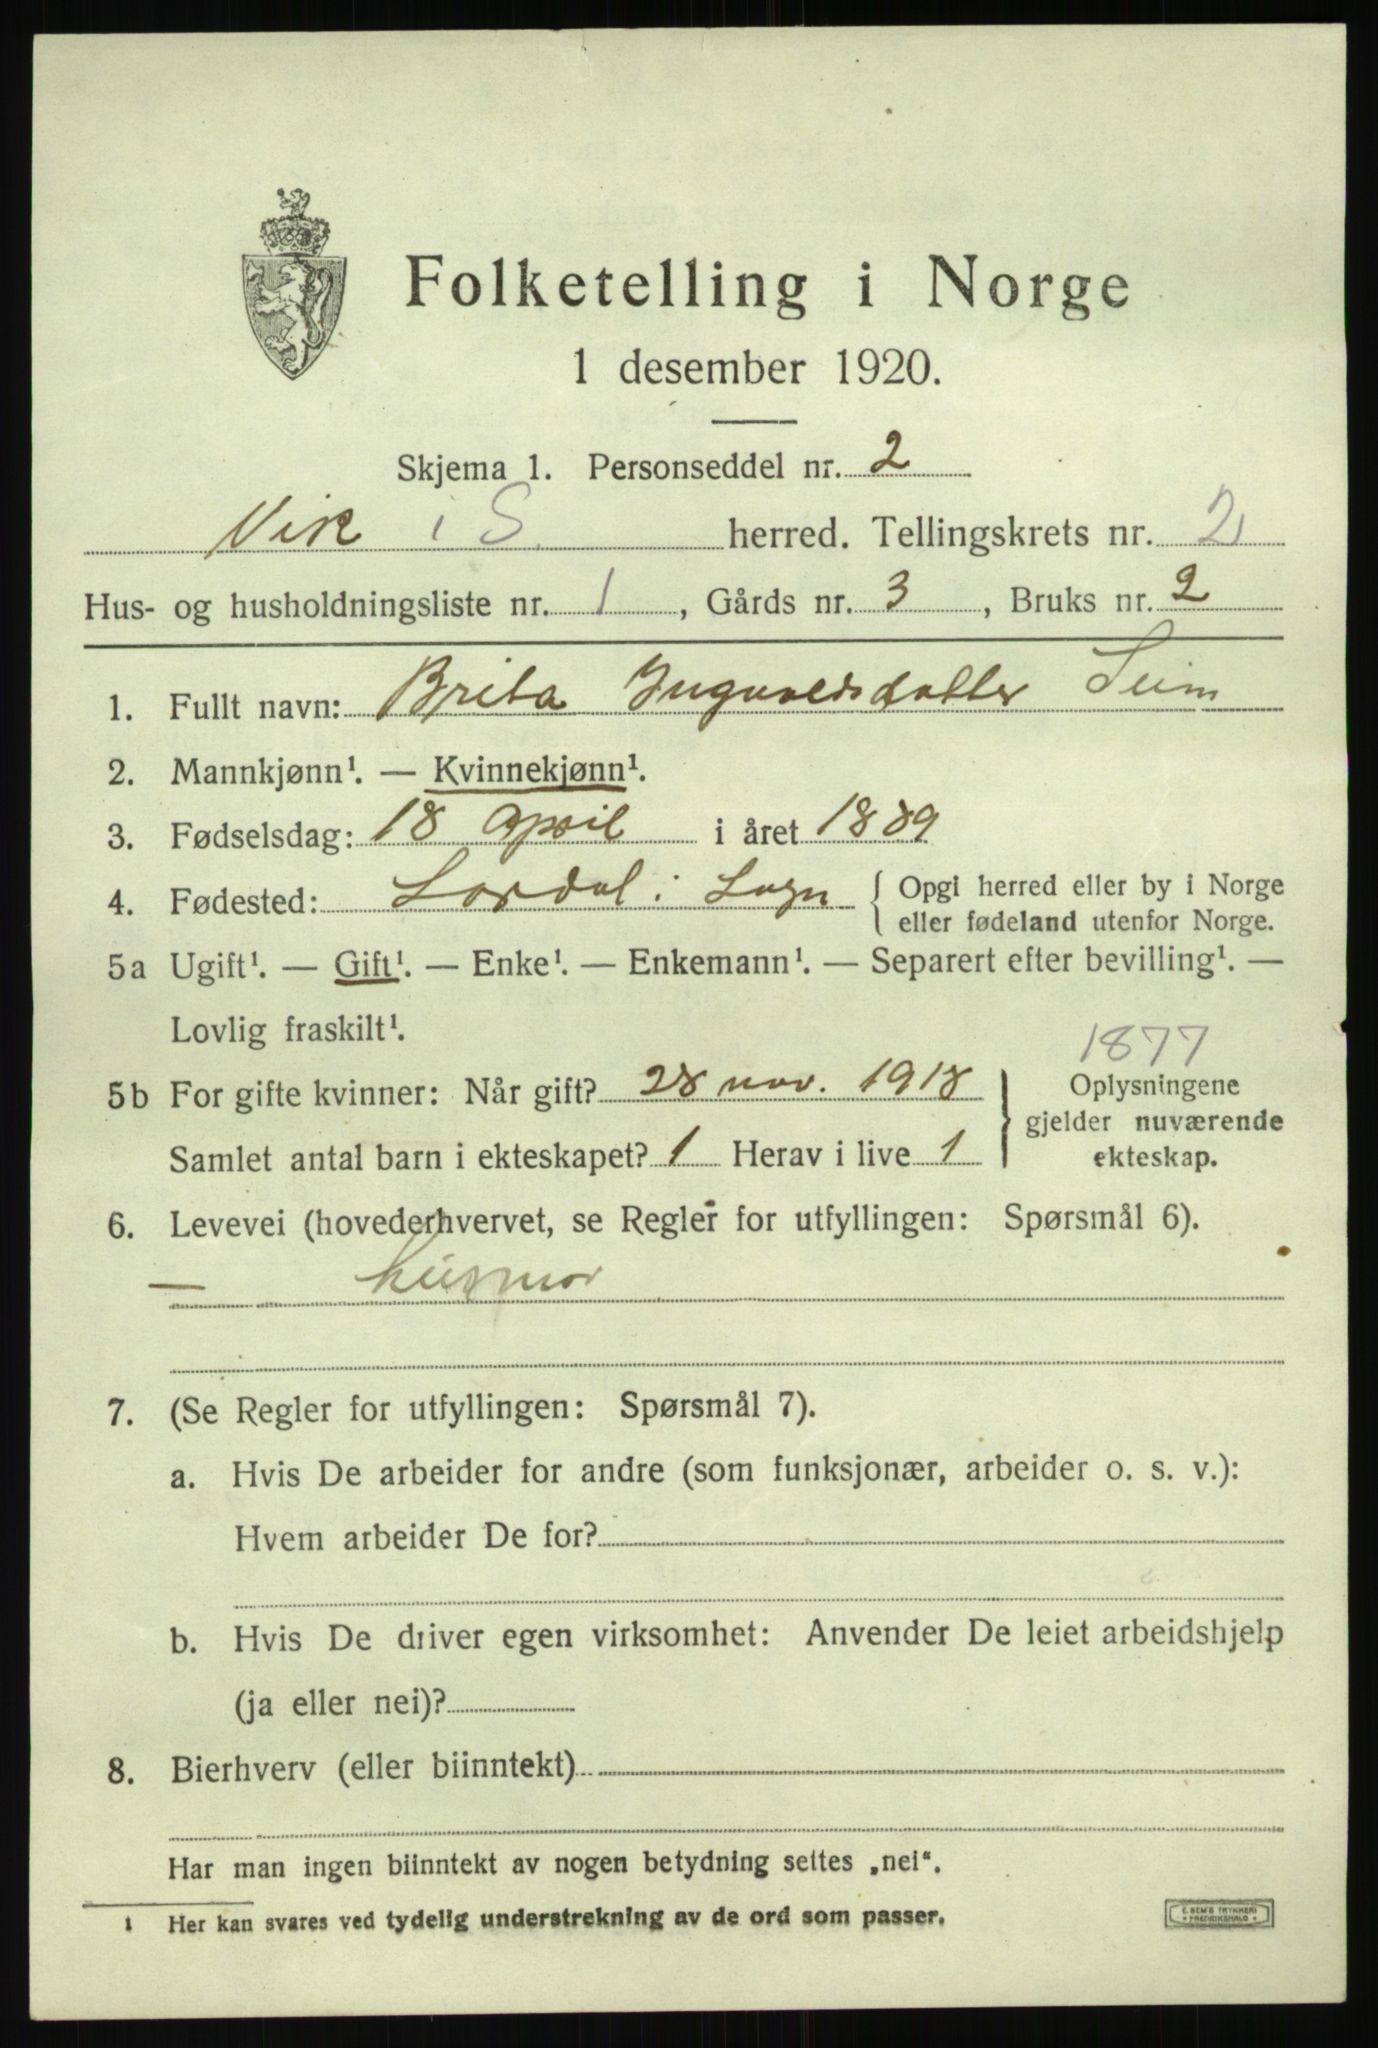 Folketelling i Norge
1 desember 1920.
Skjema 1. Personseddel nr. 2
Vik i S. herred. Tellingskrets nr. 2
Hus- og husholdningsliste nr. 1, Gårds nr. 3, Bruks nr. 2
1. Fullt navn: Brita Ingvaldsdatter Seim
2. Mannkjønn¹. — Kvinnekjønn¹.
3. Fødselsdag: 18 april i året 1889
4. Fødested: Lærdal i Sogn { Opgi herred eller by i Norge
eller fødeland utenfor Norge.
5a Ugift¹. — Gift¹. — Enke¹. — Enkemann¹. — Separert efter bevilling¹. —
Lovlig fraskilt¹.
1877
5b For gifte kvinner: Når gift? 28 nov. 1918 } Oplysningene
gjelder nuværende
Samlet antal barn i ekteskapet? 1 Herav i live 1 ekteskap.
6. Levevei (hovederhvervet, se Regler for utfyllingen: Spørsmål 6).
— husmor
7. (Se Regler for utfyllingen: Spørsmål 7).
a. Hvis De arbeider for andre (som funksjonær, arbeider o. s. v.):
Hvem arbeider De for?
b. Hvis De driver egen virksomhet: Anvender De leiet arbeidshjelp
(ja eller nei)?
8. Bierhverv (eller biinntekt)
Har man ingen biinntekt av nogen betydning settes „nei“.
¹ Her kan svares ved tydelig understrekning av de ord som passer.
E. SEM'S TRYKKERI
* FREDRIKSHALD *